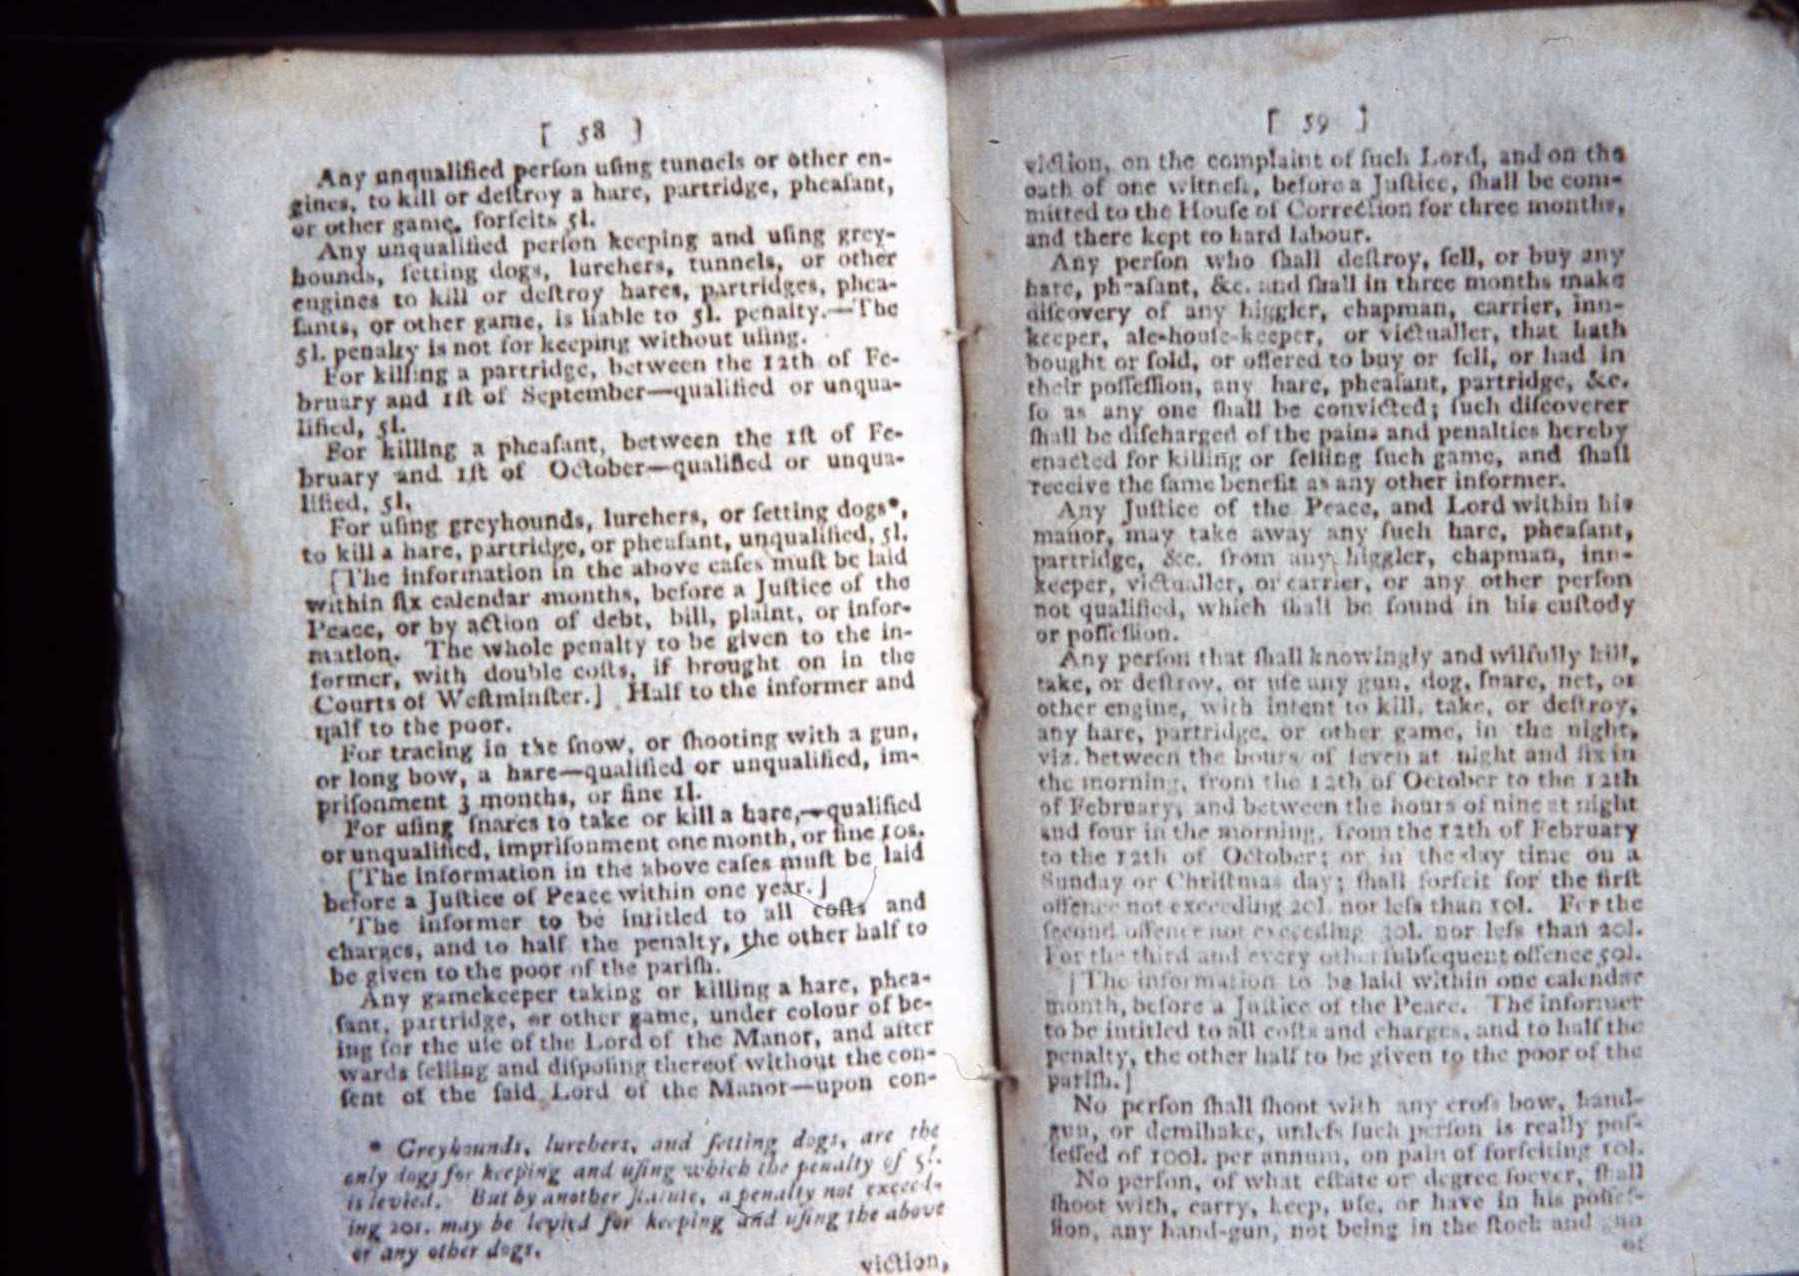 [ 58 ]
Any unqualified perſon uſing tunnels or other en-
gines, to kill or deſtroy a hare, partridge, pheaſant,
or other game, forfeits 5l.
Any unqualified perſon keeping and uſing grey-
hounds, ſetting dogs, lurchers, tunnels, or other
engines to kill or deſtroy hares, partridges, phea-
ſants, or other game, is liable to 5l. penalty.—The
5l. penalty is not for keeping without uſing.
For killing a partridge, between the 12th of Fe-
bruary and 1ſt of September—qualified or unqua-
lified, 5l.
For killing a pheaſant, between the 1ſt of Fe-
bruary and 1ſt of October—qualified or unqua-
lified, 5l.
For uſing greyhounds, lurchers, or ſetting dogs*,
to kill a hare, partridge, or pheaſant, unqualified, 5l.
[The information in the above caſes muſt be laid
within ſix calendar months, before a Juſtice of the
Peace, or by action of debt, bill, plaint, or infor-
mation. The whole penalty to be given to the in-
former, with double coſts, if brought on in the
Courts of Weſtminſter.] Half to the informer and
half to the poor.
For tracing in the ſnow, or ſhooting with a gun,
or long bow, a hare—qualified or unqualified, im-
priſonment 3 months, or fine 1l.
For uſing ſnares to take or kill a hare,—qualified
or unqualified, impriſonment one month, or fine 10s.
[The information in the above caſes muſt be laid
before a Juſtice of Peace within one year.]
The informer to be intitled to all coſts and
charges, and to half the penalty, the other half to
be given to the poor of the pariſh.
Any gamekeeper taking or killing a hare, phea-
ſant, partridge, or other game, under colour of be-
ing for the uſe of the Lord of the Manor, and after
wards ſelling and diſpoſing thereof without the con-
ſent of the ſaid Lord of the Manor—upon con-
* Greyhounds, lurchers, and ſetting dogs, are the
only dogs for keeping and uſing which the penalty of 5l.
is levied. But by another ſtatute, a penalty not exceed-
ing 20s. may be levied for keeping and uſing the above
or any other dogs.
viction,
[ 59 ]
viction, on the complaint of ſuch Lord, and on the
oath of one witneſs, before a Juſtice, ſhall be com-
mitted to the Houſe of Correction for three months,
and there kept to hard labour.
Any perſon who ſhall deſtroy, ſell, or buy any
hare, pheaſant, &c. and ſhall in three months make
diſcovery of any higgler, chapman, carrier, inn-
keeper, ale-houſe-keeper, or victualler, that hath
bought or ſold, or offered to buy or ſell, or had in
their poſſeſſion, any hare, pheaſant, partridge, &c.
ſo as any one ſhall be convicted; ſuch diſcoverer
ſhall be diſcharged of the pains and penalties hereby
enacted for killing or ſelling ſuch game, and ſhall
receive the ſame benefit as any other informer.
Any Juſtice of the Peace, and Lord within his
manor, may take away any ſuch hare, pheaſant,
partridge, &c. from any higgler, chapman, inn-
keeper, victualler, or carrier, or any other perſon
not qualified, which ſhall be found in his cuſtody
or poſſeſſion.
Any perſon that ſhall knowingly and wilfully kill,
take, or deſtroy, or uſe any gun, dog, ſnare, net, or
other engine, with intent to kill, take, or deſtroy,
any hare, partridge, or other game, in the night,
viz. between the hours of ſeven at night and ſix in
the morning, from the 12th of October to the 12th
of February, and between the hours of nine at night
and four in the morning, from the 12th of February
to the 12th of October; or in the day time on a
Sunday or Chriſtmas day; ſhall forfeit for the firſt
offence not exceeding 20l. nor leſs than 10l. For the
ſecond offence not exceeding 30l. nor leſs than 20l.
For the third and every other ſubſequent offence 50l.
[The information to be laid within one calendar
month, before a Juſtice of the Peace. The informer
to be intitled to all coſts and charges, and to half the
penalty, the other half to be given to the poor of the
pariſh.]
No perſon ſhall ſhoot with any croſs bow, hand-
gun, or demihake, unleſs ſuch perſon is really poſ-
ſeſſed of 100l. per annum, on pain of forfeiting 10l.
No perſon, of what eſtate or degree ſoever, ſhall
ſhoot with, carry, keep, uſe, or have in his poſſeſ-
ſion, any hand-gun, not being in the ſtock and gun
of